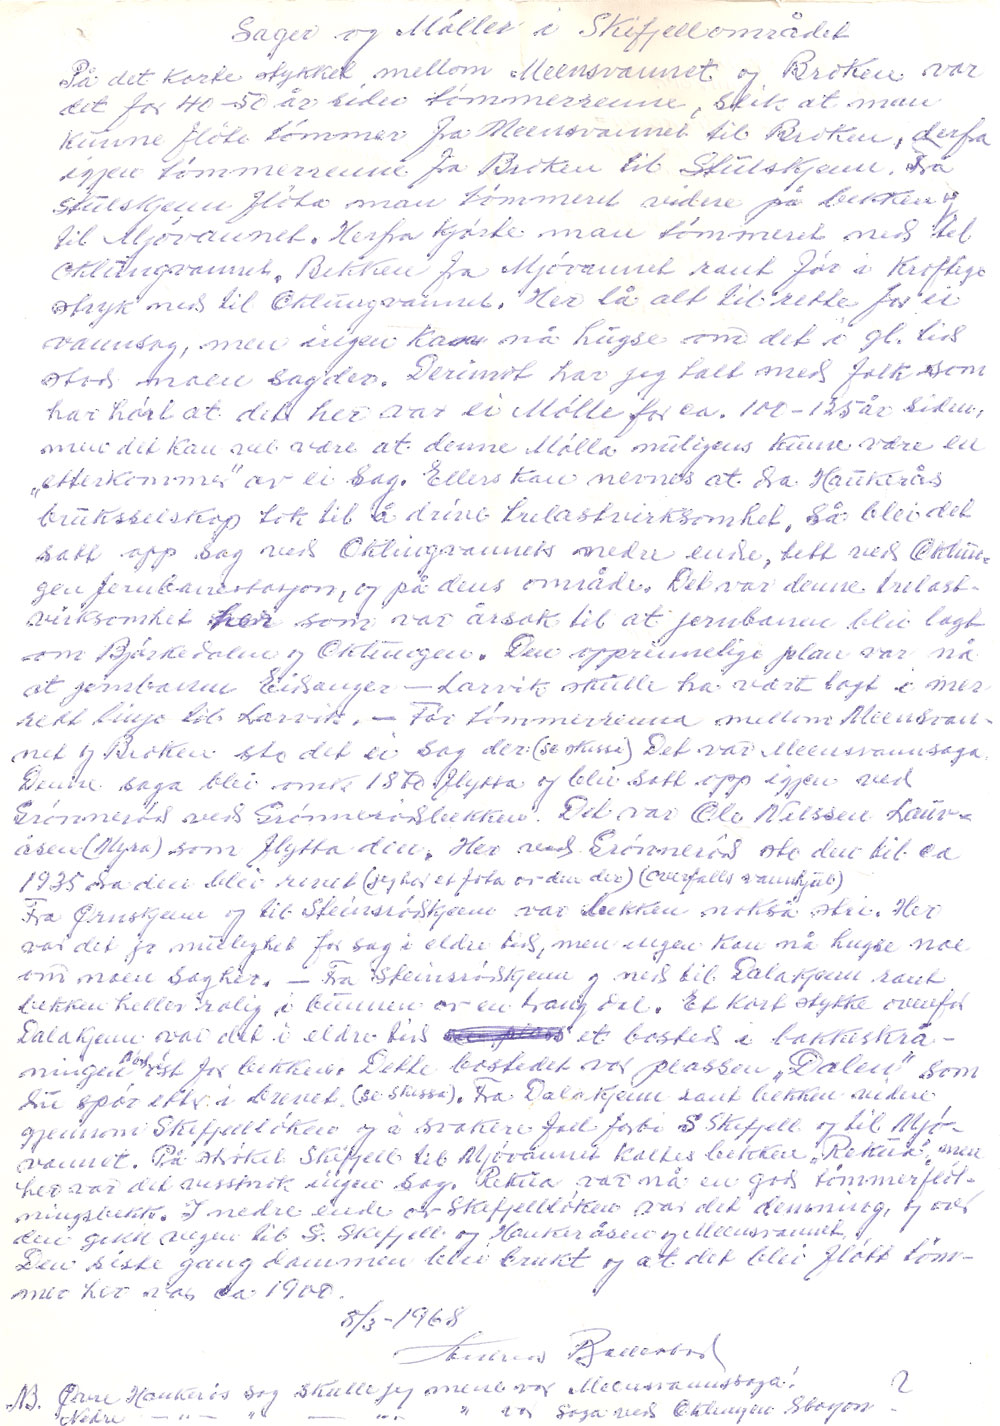 Sager og Møller i Skifjellområdet
På det korte stykket mellom Meensvannet og Broken var
det for 40-50 år siden tømmerrenne, slik at man
kunne fløte tømmer fra Meensvannet til Broken, derfra
igjen tømmerrenne fra Broken til Stulskjenn. Fra
Stulskjenn fløta man tømmeret videre på bekken
til Mjøvannet. Herfra kjørte man tømmeret ned til
Oklungvannet. Bekken fra Mjøvannet rant før i kraftige
stryk ned til Oklungvannet. Her lå alt til rette for ei
vannsag, men ingen kan nå hugse om det i gl. tid
stod noen sag der. Derimot har jeg talt med folk som
har hørt at det her var ei Mølle for ca. 100-125 år siden,
men det kan vel være at denne Mølla muligens kunne være en
„etterkommer" av ei sag. Ellers kan nevnes at da Haukerås
bruksselskap tok til å drive trelastvirksomhet, så blei det
satt opp sag ved Oklungvannets nedre ende, tett ved Oklun-
gen jernbanestasjon, og på dens område. Det var denne trelast-
virksomhet her som var årsak til at jernbanen blei lagt
om Bjørkedalen og Oklungen. Den opprinnelige plan var nå
at jernbanen Eidanger — Larvik skulle ha vært lagt i mer
rett linje til Larvik. — Før tømmerrenna mellom Meensvan-
net og Broken sto det ei sag der (se skisse) Det var Meensvannsaga.
Denne saga blei omk 1880 flytta og blei satt opp igjen ved
Grønnerød ved Grønnerødbekken. Det var Ole Nilssen Laur-
åsen (Myra) som flytta den. Her ved Grønnerød sto den til ca
1935 da den blei revet (jeg har et foto av den der) (overfalls vannhjul)
Fra Ørnskjenn og til Steinsrødkjenn var bekken nokså stri. Her
var det jo mulighet for sag i eldre tid, men ingen kan nå hugse noe
om noen sag her. — Fra Steinsrødkjenn og ned til Dalakjenn rant
bekken heller rolig i bunnen av en trang dal. Et kort stykke ovenfor
Dalakjenn var det i eldre tid et bosted i bakkeskrå-
ningen øst for bekken. Dette bostedet var plassen „Dalen" som
du spør etter i brevet (se skisse). Fra Dalakjenn rant bekken videre
gjennom Skifjelltøken og i svakere fall forbi S Skifjell og til Mjø-
vannet. På strøket Skifjell til Mjøvannet kaltes bekken „Rekua", men
her var det visstnok ingen sag. Rekua var nå en god tømmerfløt-
ningsbekk. I nedre ende av Skifjelltøken var det demning, og over
den gikk vegen til S. Skifjell og Haukeråsen og Meensvannet.
Den siste gang dammen blei brukt og at det blei fløtt tøm-
mer her var ca 1900.
8/3-1968
NB. Øvre Haukerås sag skulle jeg mene var Meensvannssaga! ?
Nedre —"— " — "— " var saga ved Oklungen Stasjon —